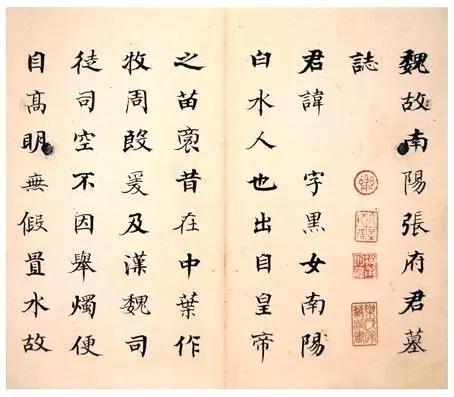 魏故南陽張府君墓
誌
君諱 字黑女南陽
白水人也出自皇帝
之苗裔昔在中葉作
牧周殷爰及漢魏司
徒司空不因舉燭便
自髙明無假置水故